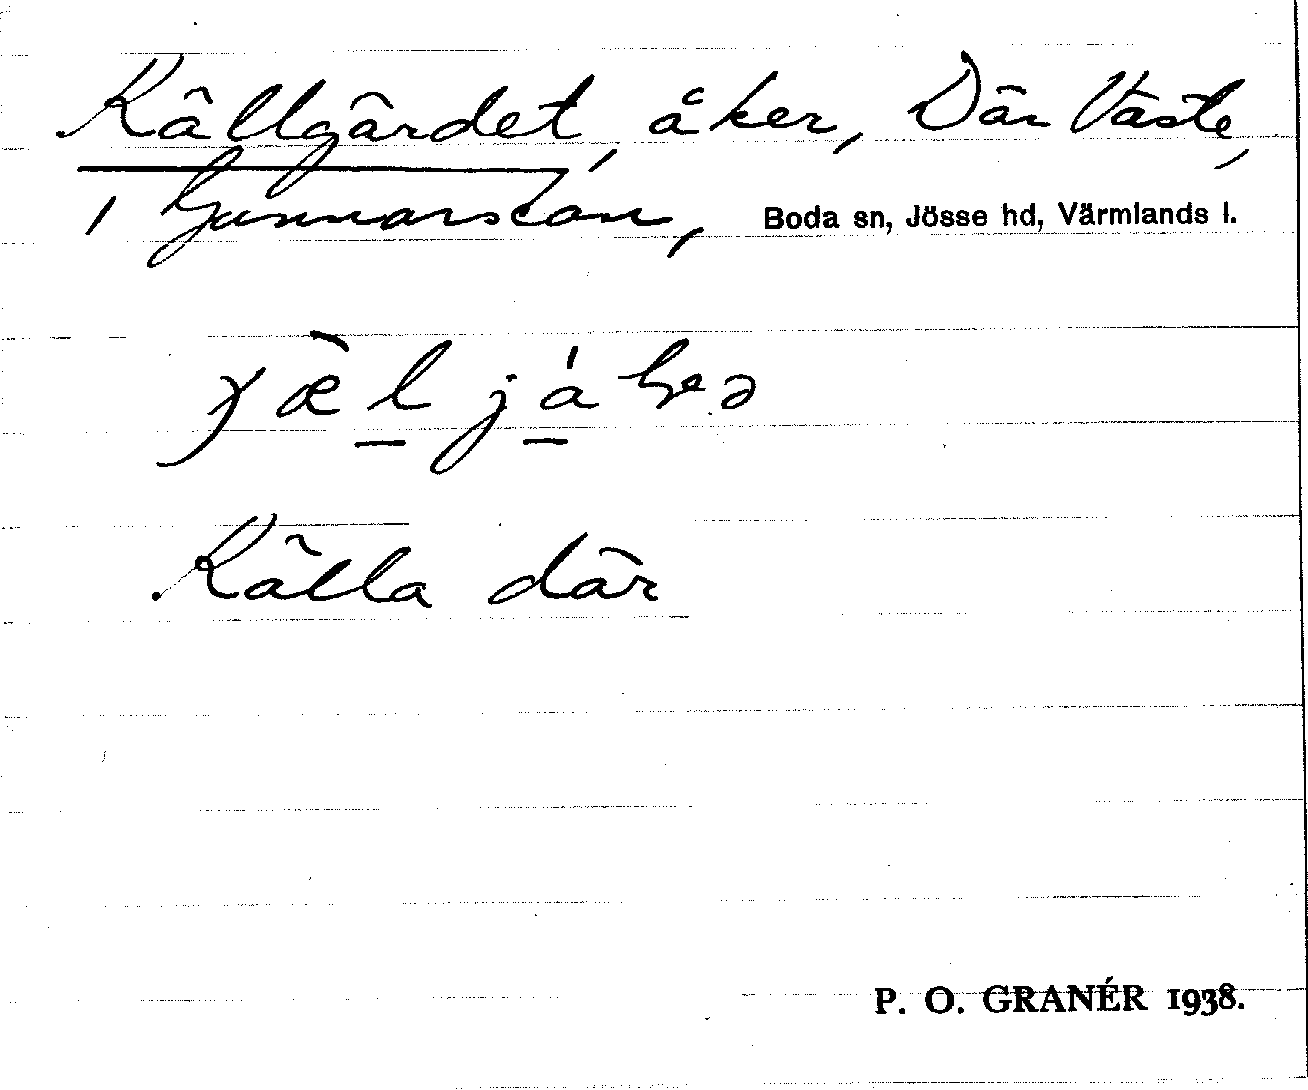 Källgärdet, åker, Där Väste,
i Gunnarskan, Boda sn, Jösse hd, Värmlands l.
Källa där
P. O. GRANÉR 1938.